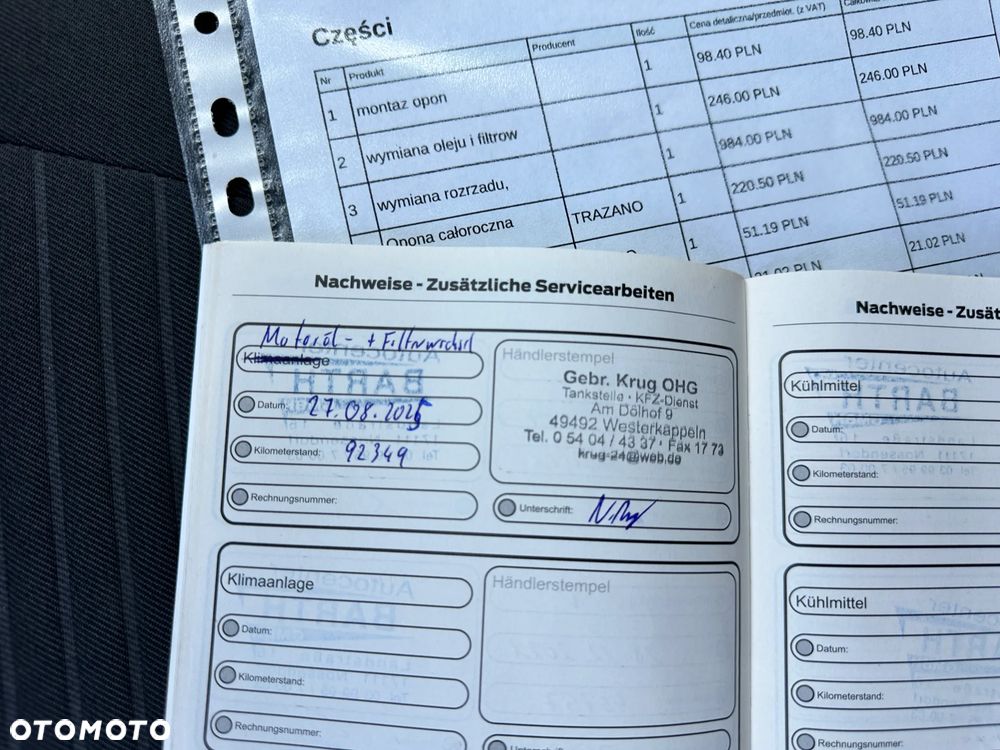 Części
Nr Produkt Producent Ilość Cena detaliczna/przedmiot. (z VAT)
1 montaz opon 1 98.40 PLN 98.40 PLN
2 wymiana oleju i filtrow 1 246.00 PLN 246.00 PLN
3 wymiana rozrzadu, 1 984.00 PLN 984.00 PLN
Opona całoroczna TRAZANO 1 220.50 PLN 220.50 PLN
1 51.19 PLN 51.19 PLN
21.02 PLN 21.02 PLN
Nachweise - Zusätzliche Servicearbeiten
Motoröl- + Filterwechsel
Klimaanlage
Datum: 27.08.2025
Kilometerstand: 92349
Rechnungsnummer:
Händlerstempel
Gebr. Krug OHG
Tankstelle · KFZ-Dienst
Am Dölhof 9
49492 Westerkappeln
Tel. 0 54 04 / 43 37 · Fax 17 73
krug-24@web.de
Unterschrift:
Klimaanlage
Datum:
Kilometerstand:
Rechnungsnummer:
Händlerstempel
Unterschrift:
Nachweise - Zusät
Kühlmittel
Datum:
Kilometerstand:
Rechnungsnummer:
Kühlmittel
Datum:
Kilometerstand:
Rechnungsnummer:
OTOMOTO